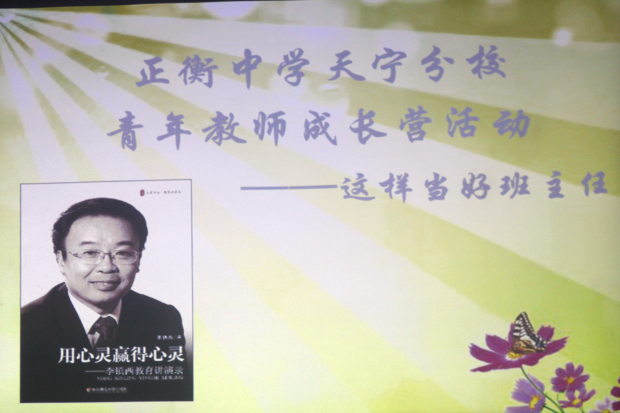 正衡中学天宁分校
青年教师成长营活动
——这样当好班主任
李镇西 著
用心灵赢得心灵
——李镇西教育讲演录
YONG XINLING YINGDE XINLING